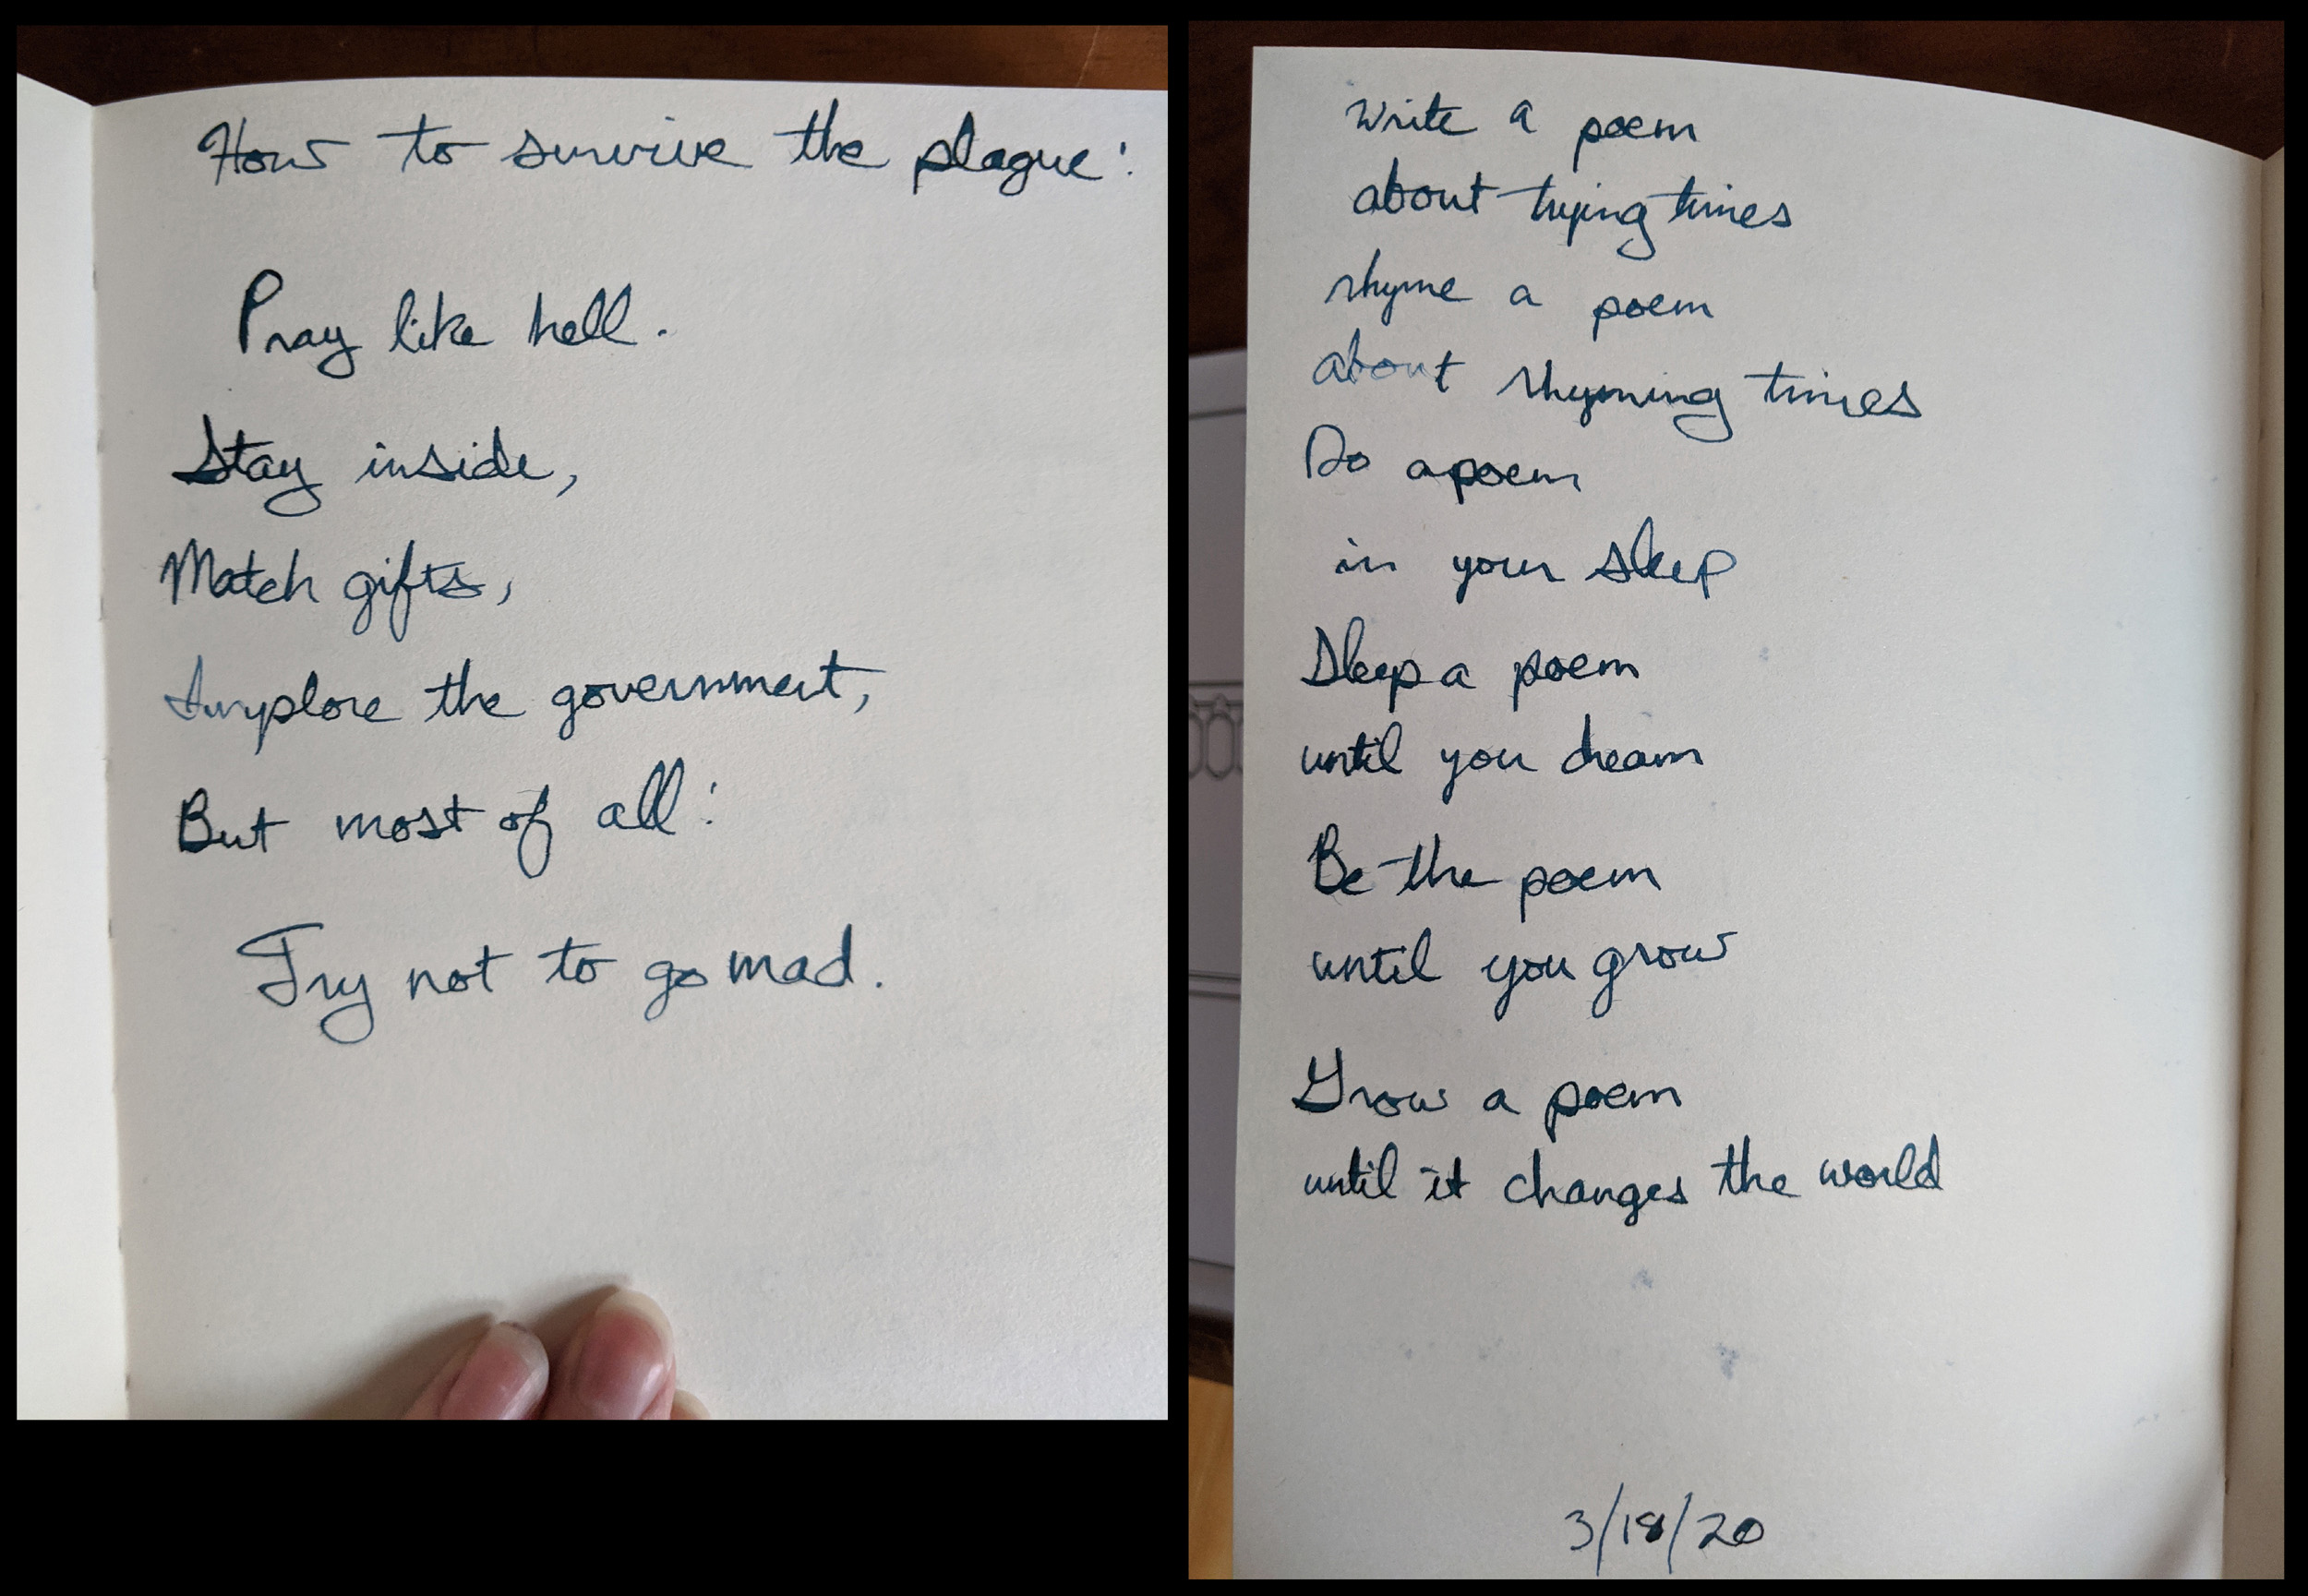 How to survive the plague:
Pray like hell.
Stay inside,
Match gifts,
Implore the government,
But most of all:
Try not to go mad.
Write a poem
about trying times
rhyme a poem
about rhyming times
Do a poem
in your sleep
Sleep a poem
until you dream
Be the poem
until you grow
Grow a poem
until it changes the world
3/18/20